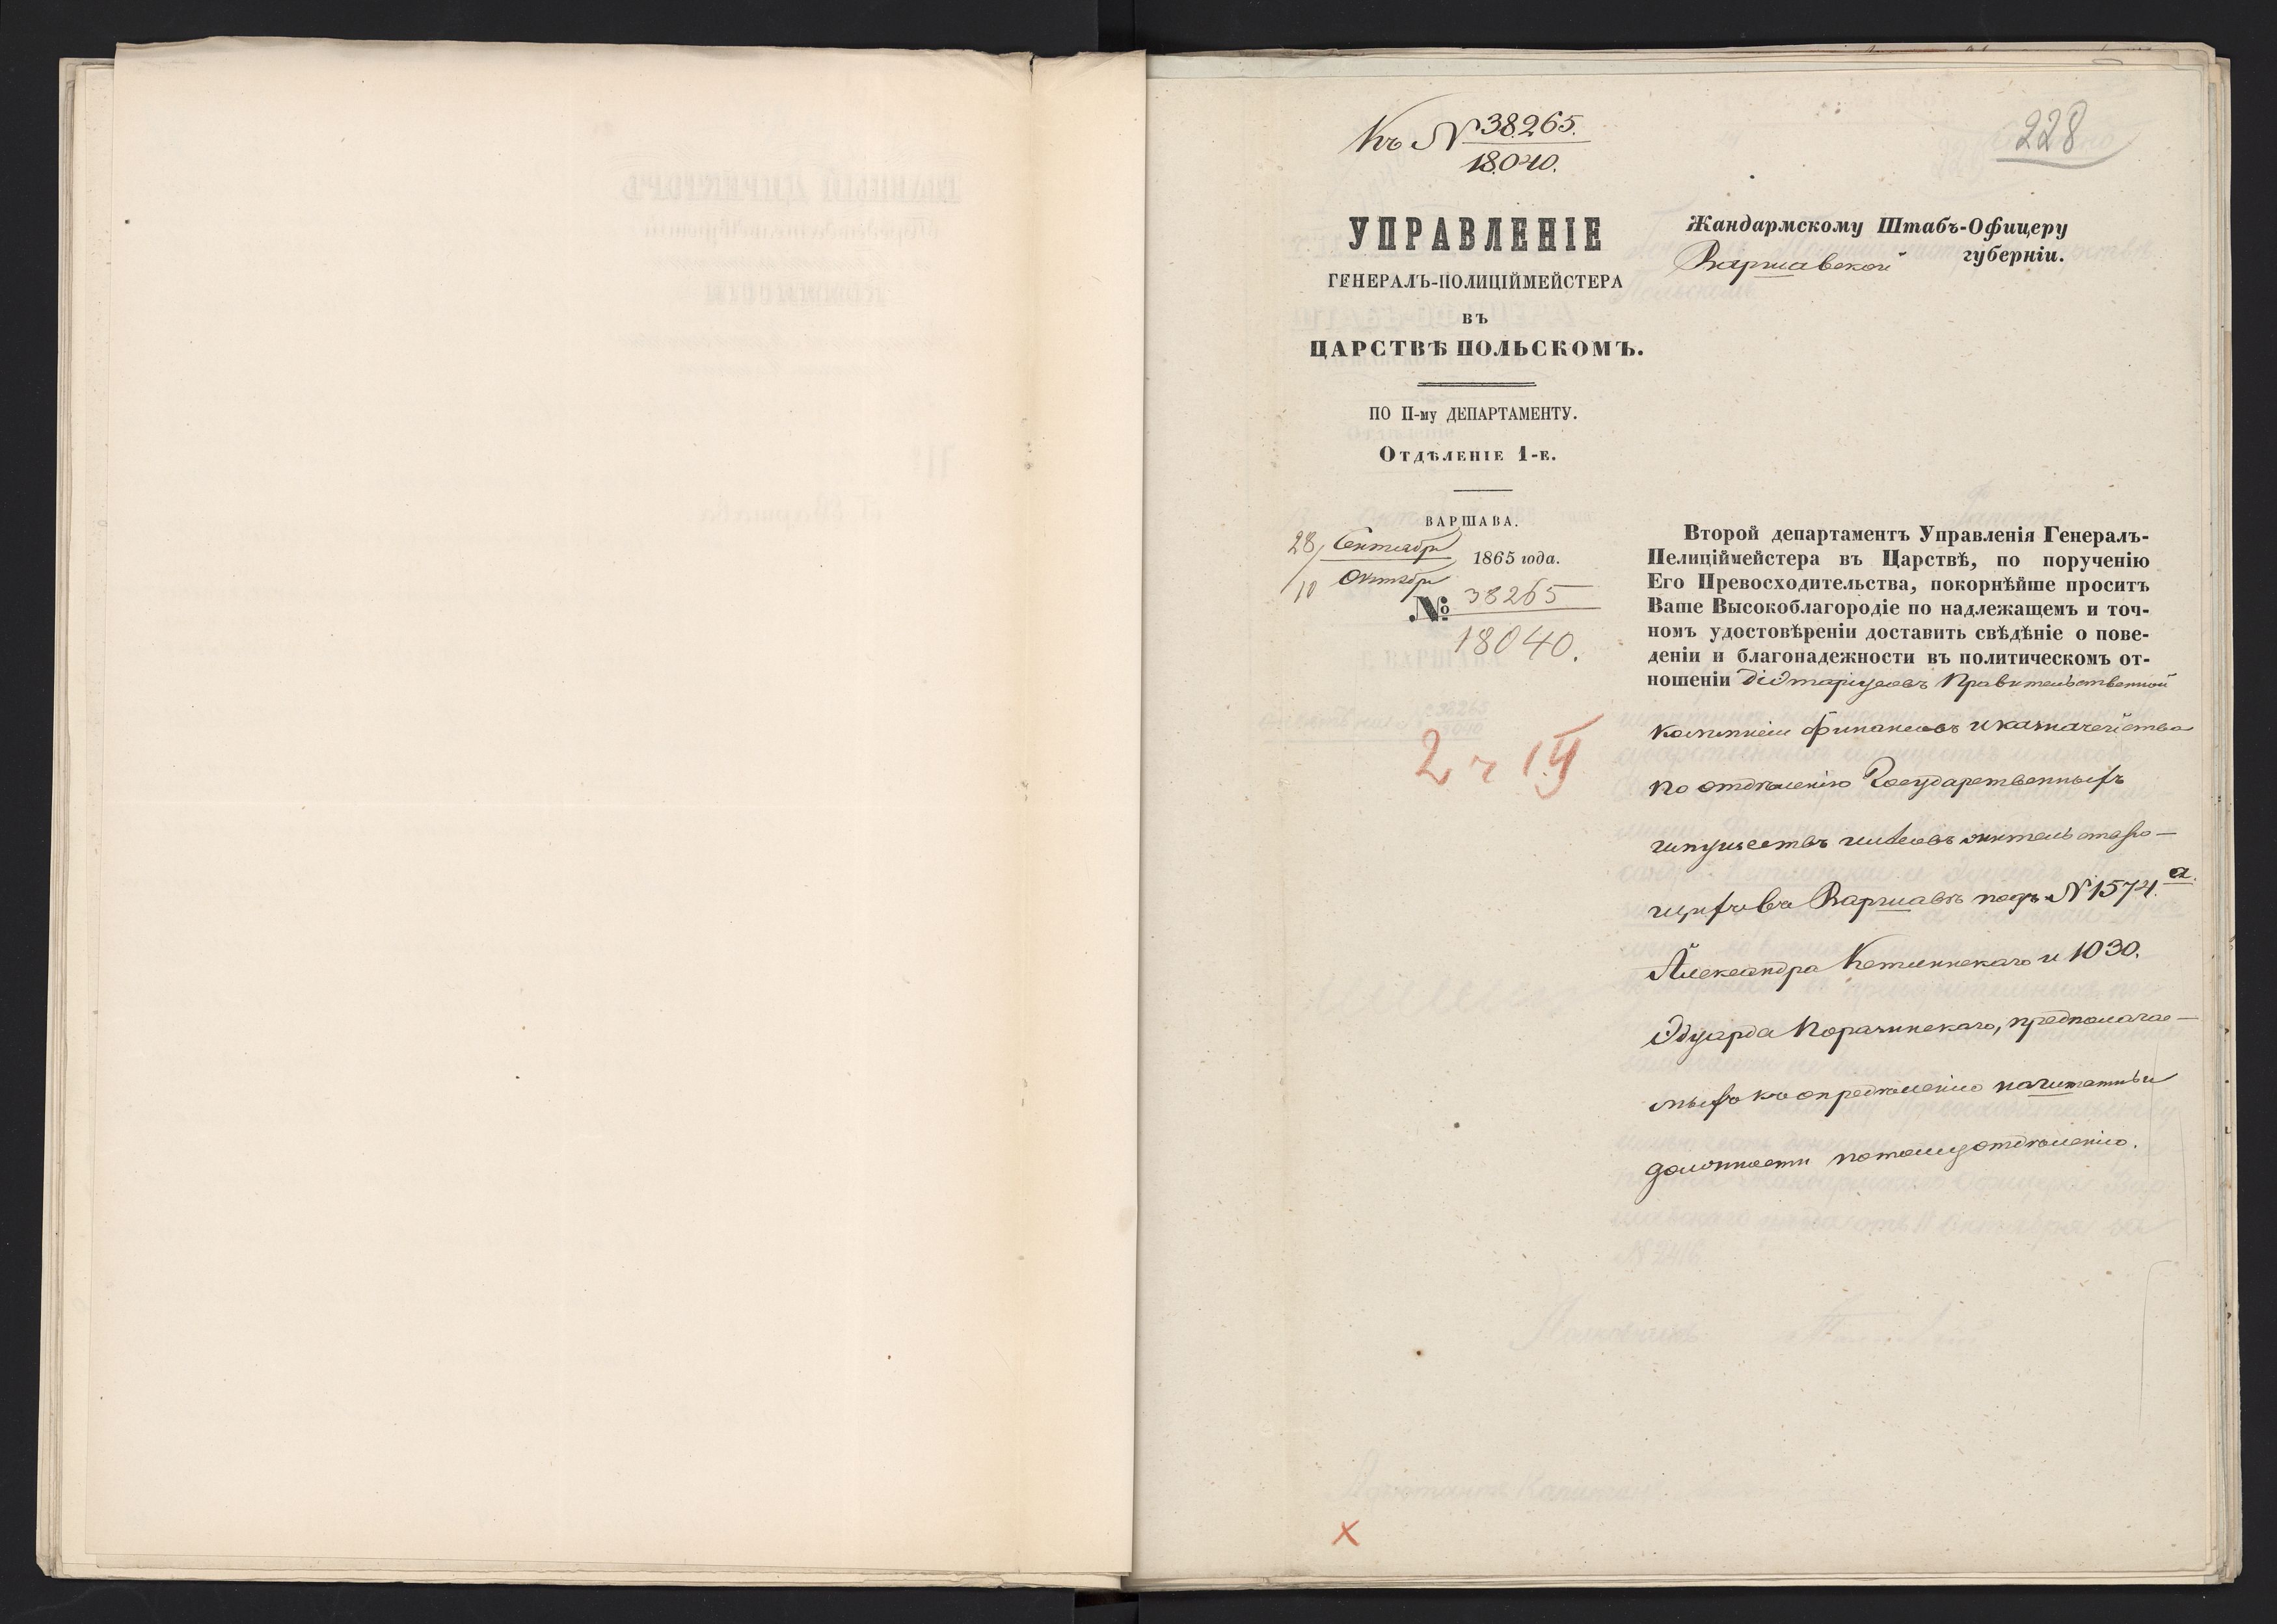 Къ № 38265.
18040.
228
УПРАВЛЕНІЕ
ГЕНЕРАЛЪ-ПОЛИЦІЙМЕЙСТЕРА
ВЪ
ЦАРСТВѢ ПОЛЬСКОМЪ.
ПО II-му ДЕПАРТАМЕНТУ.
Отдѣленіе 1-е.
ВАРШАВА.
28/10 Сентября/Октября 1865 года.
№ 38265
18040.
2 ч
Жандармскому Штабъ-Офицеру
Варшавской губерніи.
Второй департаментъ Управленія Генералъ-
Пелиціймейстера въ Царствѣ, по порученію
Его Превосходительства, покорнѣйше проситъ
Ваше Высокоблагородіе по надлежащемъ и точ-
номъ удостовѣреніи доставить свѣдѣніе о пове-
деніи и благонадежности въ политическомъ от-
ношеніи Діэтаріусовъ Правительственной
коммисіи финансовъ и казначейства
по отдѣленію Государственныхъ
имуществъ и лѣсовъ жительствую-
щихъ въ Варшавѣ подъ № 1574.а.
Александра Кетлинскаго и 1030.
Эдуарда Порачинскаго, предполагае-
мыхъ къ опредѣленію на штатныя
должности по тому отдѣленію.